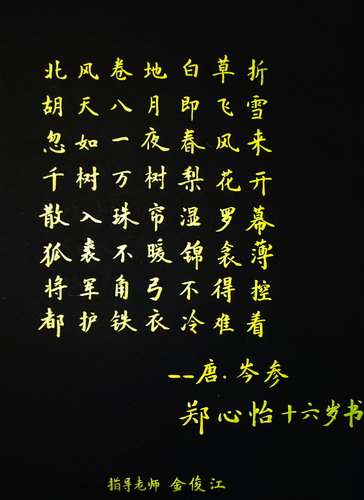 北风卷地白草折
胡天八月即飞雪
忽如一夜春风来
千树万树梨花开
散入珠帘湿罗幕
狐裘不暖锦衾薄
将军角弓不得控
都护铁衣冷难着
--唐.岑参
郑心怡十六岁书
指导老师 金俊江